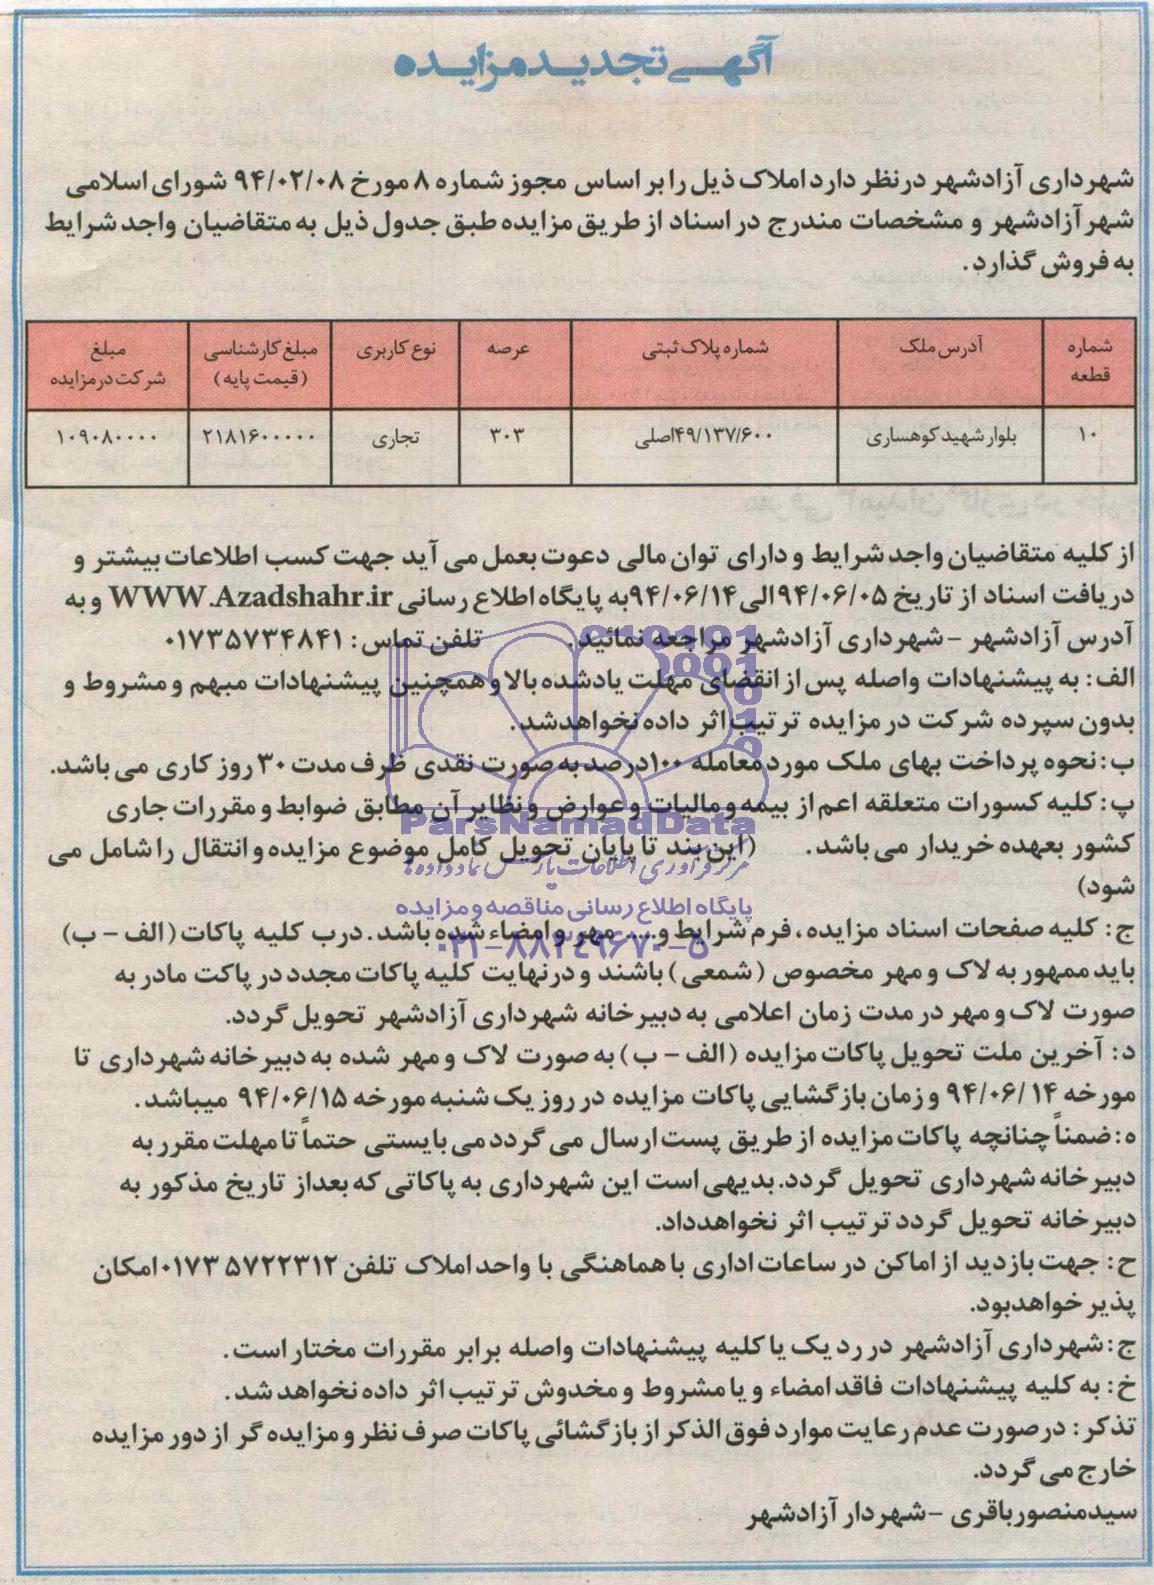 آگهی تجدید مزایده
شهرداری آزادشهر درنظر دارد املاک ذیل را بر اساس مجوز شماره ۸ مورخ ۹۴/۰۲/۰۸ شورای اسلامی
شهر آزادشهر و مشخصات مندرج در اسناد از طریق مزایده طبق جدول ذیل به متقاضیان واجد شرایط
به فروش گذارد.
شماره قطعه | آدرس ملک | شماره پلاک ثبتی | عرصه | نوع کاربری | مبلغ کارشناسی (قیمت پایه) | مبلغ شرکت در مزایده
۱۰ | بلوار شهید کوهساری | ۴۹/۱۳۷/۶۰۰اصلی | ۳۰۳ | تجاری | ۲۱۸۱۶۰۰۰۰۰ | ۱۰۹۰۸۰۰۰۰
از کلیه متقاضیان واجد شرایط و دارای توان مالی دعوت بعمل می آید جهت کسب اطلاعات بیشتر و
دریافت اسناد از تاریخ ۹۴/۰۶/۰۵الی ۹۴/۰۶/۱۴به پایگاه اطلاع رسانی WWW.Azadshahr.ir و به
آدرس آزادشهر - شهرداری آزادشهر مراجعه نمائید. تلفن تماس: ۰۱۷۳۵۷۳۴۸۴۱
الف: به پیشنهادات واصله پس از انقضای مهلت یادشده بالا و همچنین پیشنهادات مبهم و مشروط و
بدون سپرده شرکت در مزایده ترتیب اثر داده نخواهدشد.
ب: نحوه پرداخت بهای ملک مورد معامله ۱۰۰درصد به صورت نقدی ظرف مدت ۳۰ روز کاری می باشد.
پ: کلیه کسورات متعلقه اعم از بیمه و مالیات و عوارض و نظایر آن مطابق ضوابط و مقررات جاری
کشور بعهده خریدار می باشد. (این بند تا پایان تحویل کامل موضوع مزایده و انتقال را شامل می
شود)
ج: کلیه صفحات اسناد مزایده، فرم شرایط و.... مهر و امضاء شده باشد. درب کلیه پاکات (الف - ب)
باید ممهور به لاک و مهر مخصوص (شمعی) باشند و درنهایت کلیه پاکات مجدد در پاکت مادر به
صورت لاک و مهر در مدت زمان اعلامی به دبیرخانه شهرداری آزادشهر تحویل گردد.
د: آخرین ملت تحویل پاکات مزایده (الف - ب) به صورت لاک و مهر شده به دبیرخانه شهرداری تا
مورخه ۹۴/۰۶/۱۴ و زمان بازگشایی پاکات مزایده در روز یک شنبه مورخه ۹۴/۰۶/۱۵ میباشد.
ه: ضمناً چنانچه پاکات مزایده از طریق پست ارسال می گردد می بایستی حتماً تا مهلت مقرر به
دبیرخانه شهرداری تحویل گردد. بدیهی است این شهرداری به پاکاتی که بعداز تاریخ مذکور به
دبیرخانه تحویل گردد ترتیب اثر نخواهدداد.
ح: جهت بازدید از اماکن در ساعات اداری با هماهنگی با واحد املاک تلفن ۰۱۷۳۵۷۲۲۳۱۲ امکان
پذیر خواهدبود.
ج: شهرداری آزادشهر در رد یک یا کلیه پیشنهادات واصله برابر مقررات مختار است.
خ: به کلیه پیشنهادات فاقد امضاء و یا مشروط و مخدوش ترتیب اثر داده نخواهد شد.
تذکر: درصورت عدم رعایت موارد فوق الذکر از بازگشائی پاکات صرف نظر و مزایده گر از دور مزایده
خارج می گردد.
سیدمنصور باقری - شهردار آزادشهر
ParsNamadData
مرکز فرآوری اطلاعات پارس نماد داده ها
پایگاه اطلاع رسانی مناقصه و مزایده
۰۲۱-۸۸۳۴۹۶۷۰-۵